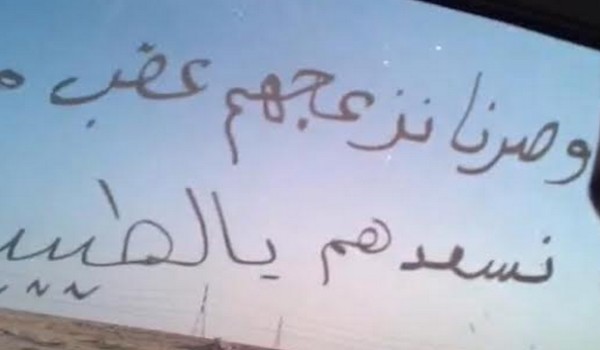 وصرنا نزعجهم عقب
نسعدهم يالطيب